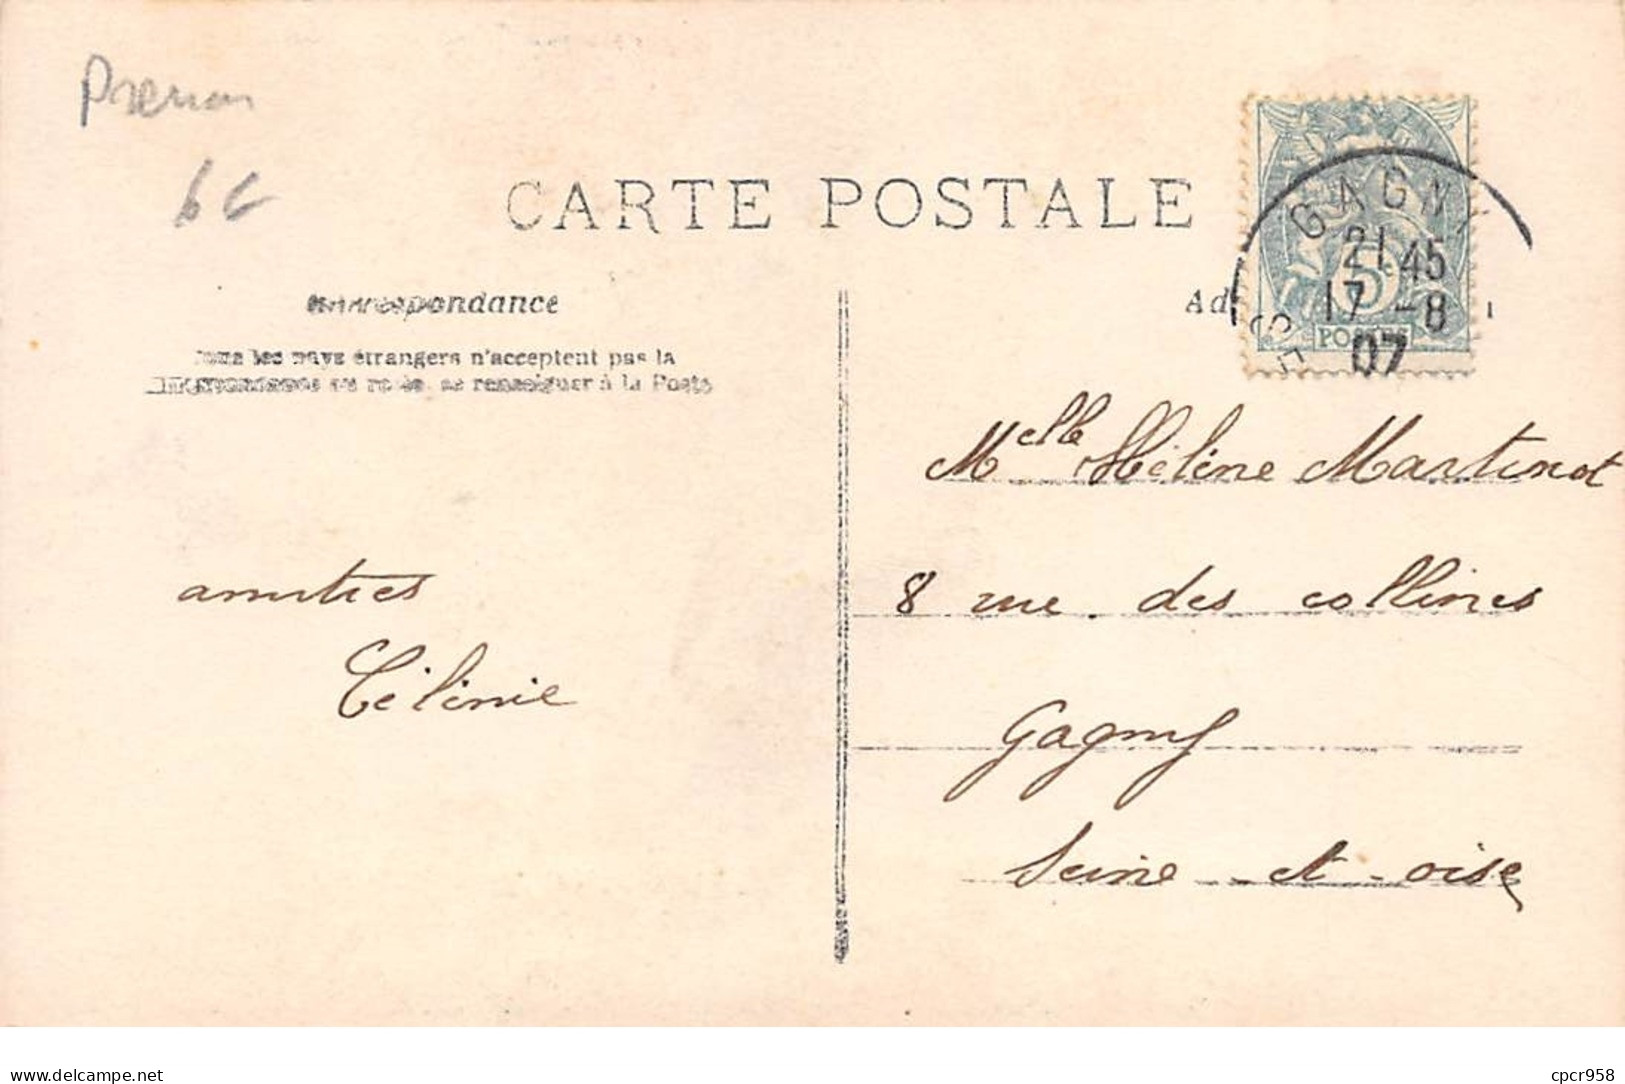 Prenom
6€
CARTE POSTALE
Correspondance
Tous les pays étrangers n'acceptent pas la
se renseigner à la Poste
GAGNY
21 45
17 -8
07
5c
POSTES
Melle Hélène Martinot
8 rue des collines
Gagny
Seine et oise
amitiés
Célinie
delcampe.net
cpcr958